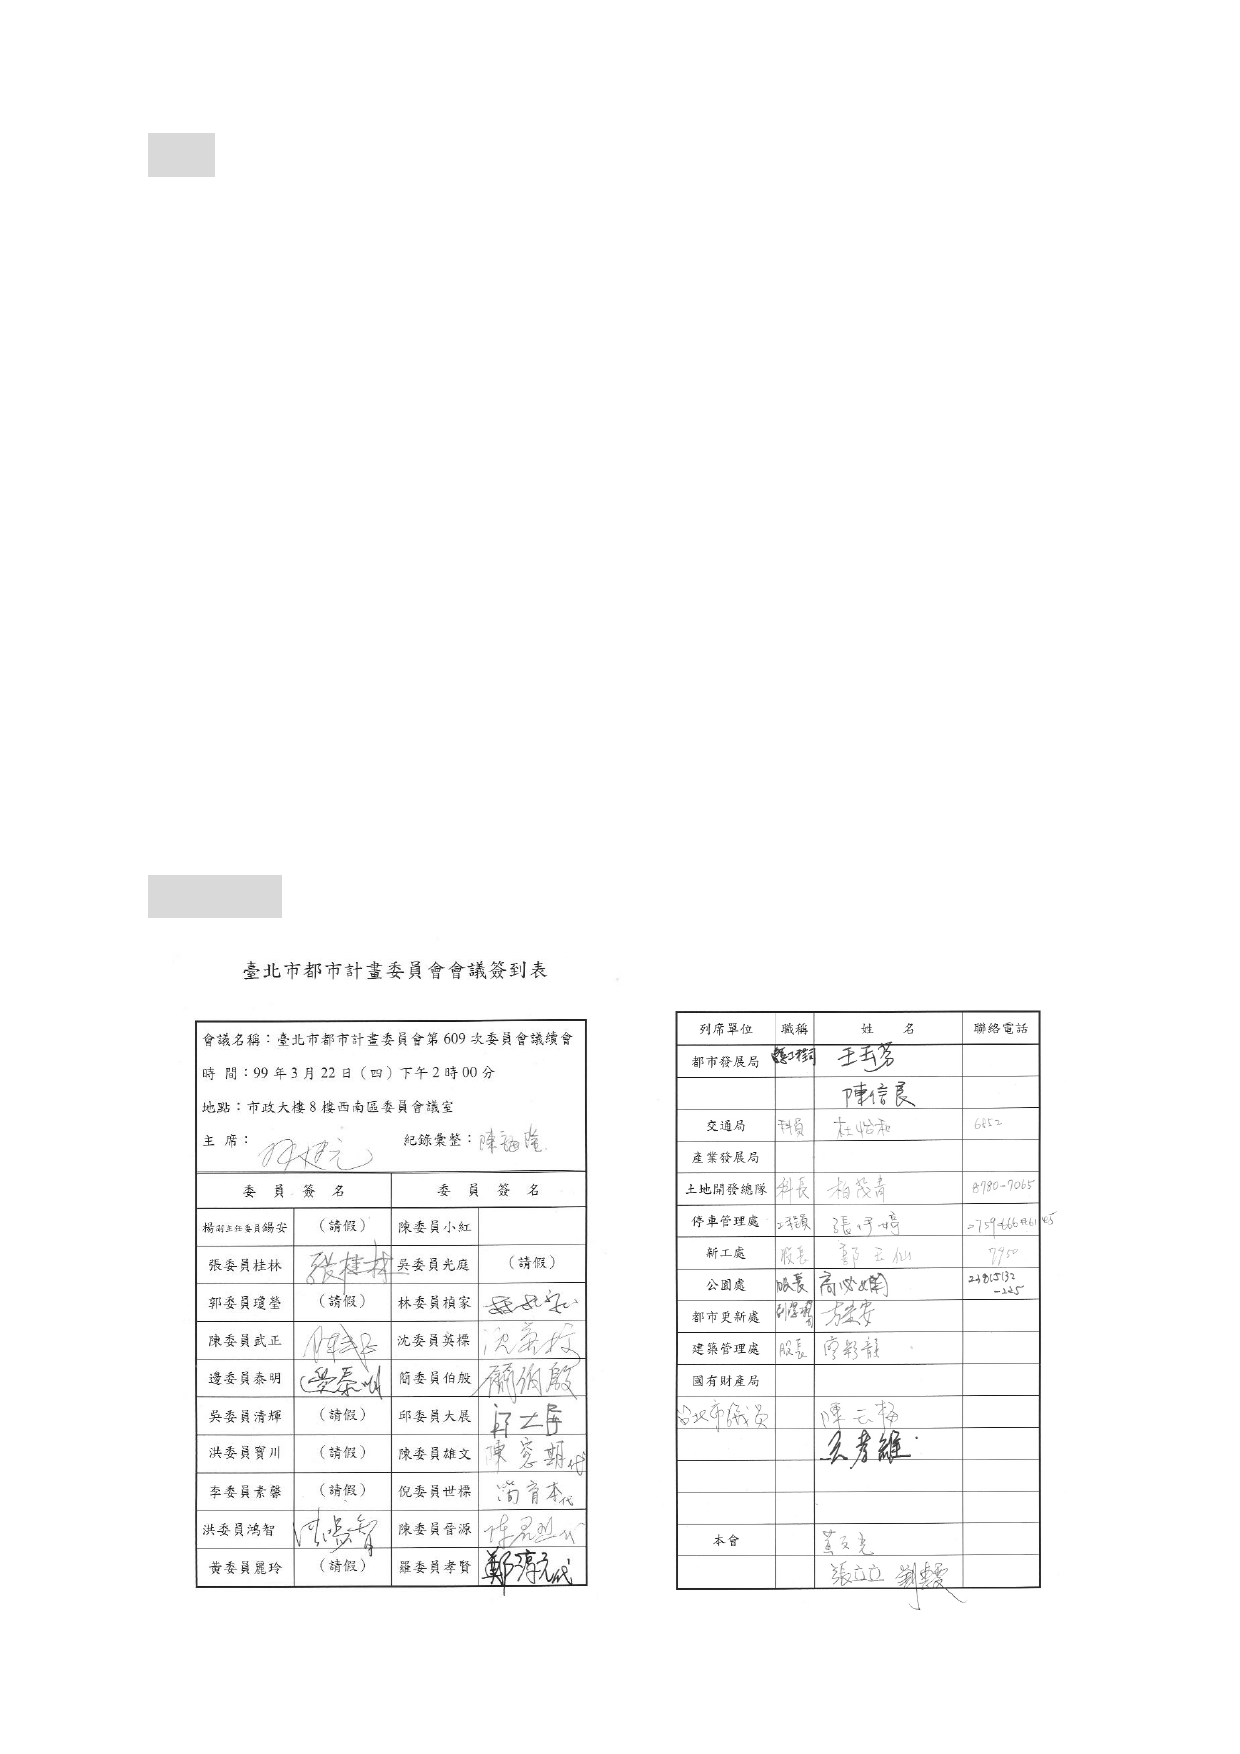 臺北市都市計畫委員會會議簽到表
會議名稱：臺北市都市計畫委員會第609次委員會議續會
時 間：99年3月22日（四）下午2時00分
地點：市政大樓8樓西南區委員會議室
主 席：
紀錄彙整：陳福隆
委 員 簽 名 委 員 簽 名
楊副主任委員錫安 （請假） 陳委員小紅
張委員桂林 張桂林 吳委員光庭 （請假）
郭委員瓊瑩 （請假） 林委員楨家
陳委員武正 陳武正 沈委員英標
邊委員泰明 邊泰明 簡委員伯殷 簡伯殷
吳委員清輝 （請假） 邱委員大展 邱大展
洪委員寶川 （請假） 陳委員雄文 陳 期代
李委員素馨 （請假） 倪委員世標 簡育本代
洪委員鴻智 洪鴻智 陳委員晉源
黃委員麗玲 （請假） 羅委員孝賢 鄭淳元代
列席單位 職稱 姓 名 聯絡電話
都市發展局 王玉芬
陳信良
交通局 科員 杜怡和 6652
產業發展局
土地開發總隊 科長 柏茂青 8780-7065
停車管理處 張伊婷
新工處 股長 郭玉仙 7950
公園處 股長 高
23815132
-225
都市更新處 方定安
建築管理處 股長 廖彩龍
國有財產局
台北市議員 陳
王孝維
本會
張立立